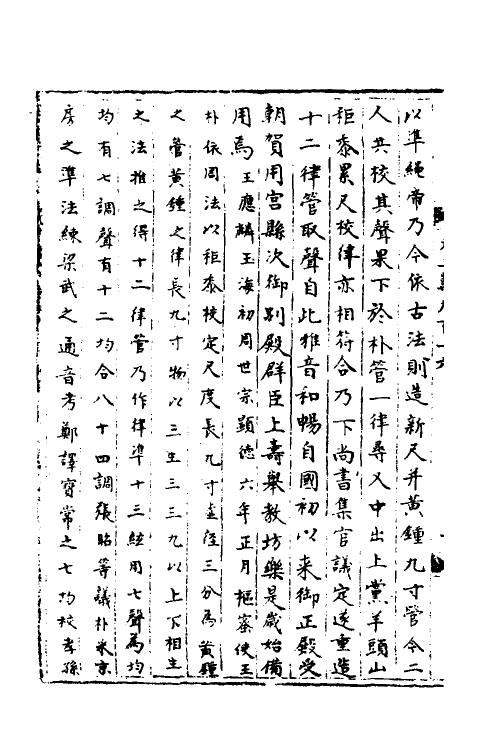 以準繩帝乃令依古法則造新尺并黃鍾九寸管令二
人共校其聲果下於朴管一律尋又中出上黨羊頭山
秬黍累尺校律亦相符合乃下尚書集官議定遂重造
十二律管取聲自此雅音和暢自國初以来御正殿受
朝賀用宮縣次御别殿群臣上壽舉教坊樂是歲始備
用焉王應麟玉海初周世宗顯德六年正月樞宻使王
朴依周法以秬黍校定尺度長九寸虗徑三分為黃鍾
之管黃鍾之律長九寸物以三生三三九以上下相生
之法推之得十二律管乃作律準十三絃用七聲為均
均有七調聲有十二均合八十四調張昭等議朴采京
房之準法練梁武之通音考鄭譯寳常之七均校孝孫